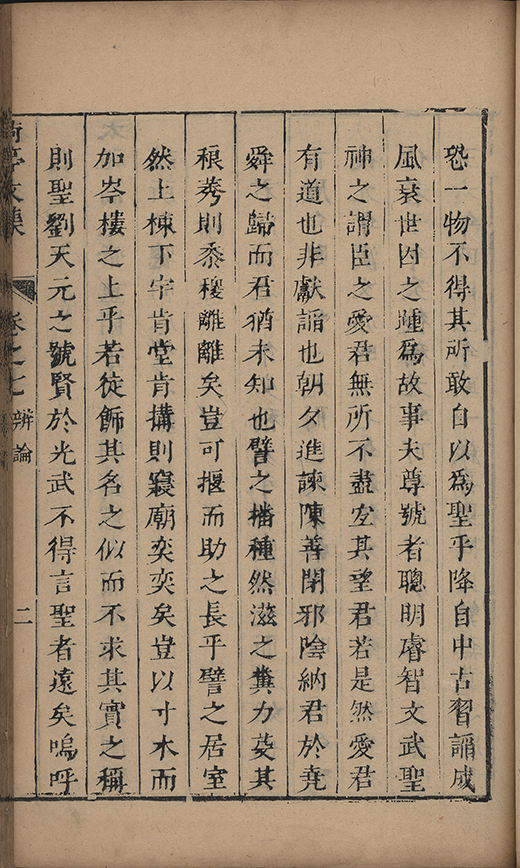 恐一物不得其所敢自以爲聖乎降自中古習謟成
風衰世因之踵爲故事夫尊號者聰明睿智文武聖
神之謂臣之愛君無所不盡宐其望君若是然愛君
有道也非獻謟也朝夕進諫陳善閉邪隂納君於堯
舜之歸而君猶未知也譬之播種然滋之糞力芟其
稂莠則黍稷離離矣豈可揠而助之長乎譬之居室
然上棟下宇肯堂肯搆則寢廟奕奕矣豈以寸木而
加岑樓之上乎若徒飾其名之似而不求其實之稱
則聖劉天元之號賢於光武不得言聖者遠矣嗚呼
文集
卷之七
辨論
二